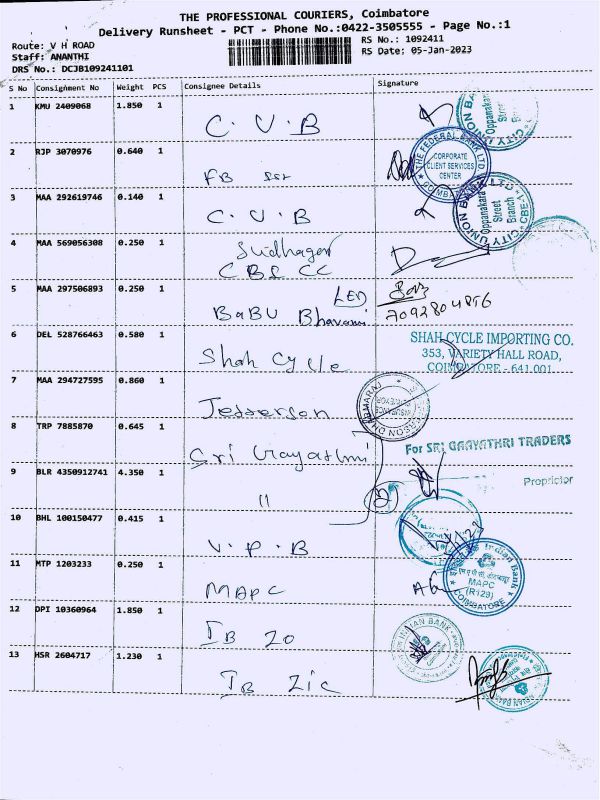 THE PROFESSIONAL COURIERS, Coimbatore
Delivery Runsheet - PCT - Phone No.:0422-3505555 - Page No.:1
Route: V H ROAD
RS No.: 1092411
Staff: ANANTHI
RS Date: 05-Jan-2023
DRS No.: DCJB109241101
S No Consignment No Weight PCS Consignee Details Signature
1 KMU 2409068 1.850 1
C.U.B
CITY UNION BANK
Oppanakara
Street
2 RJP 3070976 0.640 1
FB
THE FEDERAL BANK LTD.
CORPORATE
CLIENT SERVICES
CENTER
3 MAA 292619746 0.140 1
C.U.B
CITY UNION BANK LTD.
Oppanakara
Street
Branch
CBE-1
4 MAA 569056308 0.250 1
Sudhagar
CBS CC
5 MAA 297506893 0.250 1
LED
BaBU Bhavani
7092804816
6 DEL 528766463 0.580 1
Shah Cycle
SHAH CYCLE IMPORTING CO.
353, VARIETY HALL ROAD,
COIMBATORE - 641 001
7 MAA 294727595 0.860 1
Jefferson
8 TRP 7885870 0.645 1
Sri Gayathri
For SRI GAAYATHRI TRADERS
Proprietor
9 BLR 4350912741 4.350 1
"
(2)
10 BHL 100150477 0.415 1
V.P.B
11 MTP 1203233 0.250 1
MAPC
Indian Bank
MAPC
(R129)
COIMBATORE
12 DPI 10360964 1.850 1
IB ZO
INDIAN BANK
13 HSR 2604717 1.230 1
IB Zic